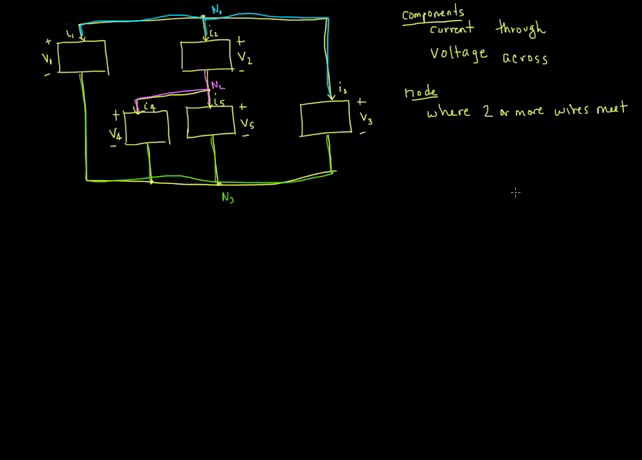 N1
i1
i2
+
V1
-
+
V2
-
N2
i4
i5
i3
+
V4
-
+
V5
-
+
V3
-
N3
Components
current through
Voltage across
node
where 2 or more wires meet